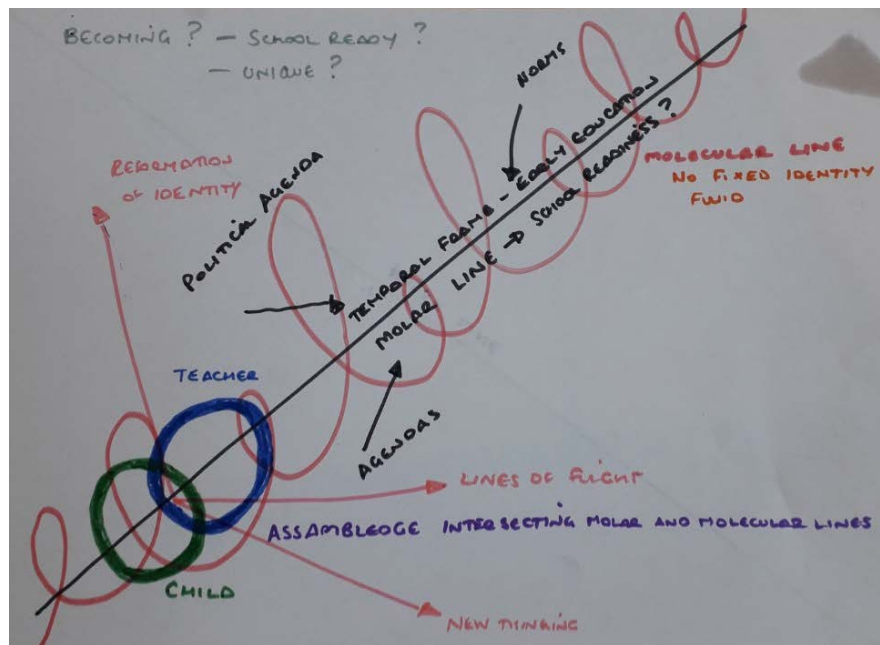 BECOMING? – SCHOOL READY?
– UNIQUE?
NORMS
REFORMATION
OF IDENTITY
POLITICAL AGENDA
TEMPORAL FRAME – EARLY EDUCATION
MOLAR LINE → SCHOOL READINESS?
MOLECULAR LINE
NO FIXED IDENTITY
FLUID
TEACHER
AGENDAS
LINES OF FLIGHT
ASSAMBLEDGE INTERSECTING MOLAR AND MOLECULAR LINES
CHILD
NEW THINKING